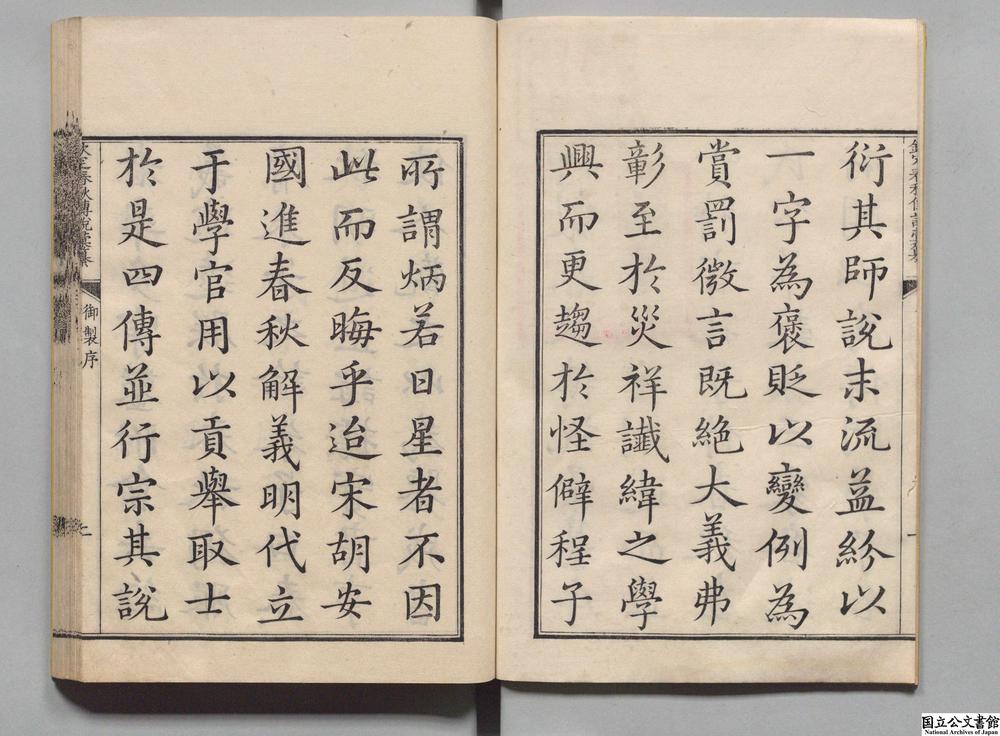 衍其師說末流益紛以
一字為褒貶以變例為
賞罰微言既絕大義弗
彰至於災祥讖緯之學
興而更趨於怪僻程子
所謂炳若日星者不因
此而反晦乎迨宋胡安
國進春秋解義明代立
于學官用以貢舉取士
於是四傳並行宗其說
欽定春秋傳說彙纂
御製序
二
国立公文書館
National Archives of Japan